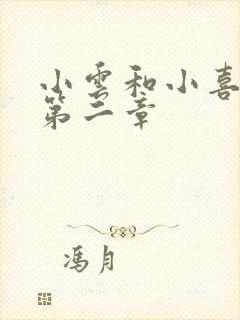 小雲和小喜
第二章
馮月